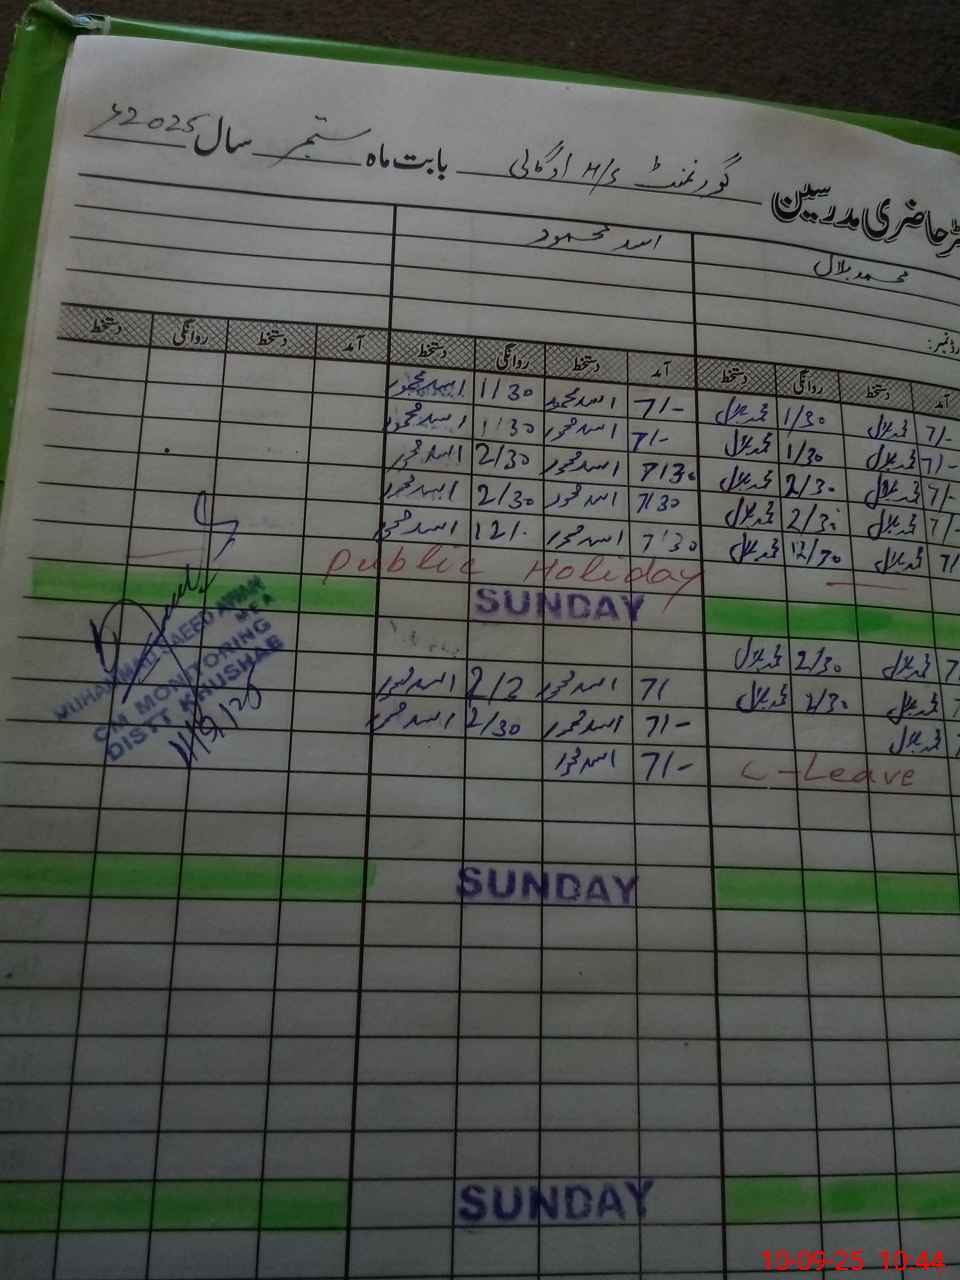 حاضری مدرسین گورنمنٹ H/S ادگالی بابت ماہ ستمبر سال 2025ء
محمد بلال اسد محمود
آمد دستخط روانگی دستخط آمد دستخط روانگی دستخط آمد دستخط روانگی دستخط
7/- محمد بلال 1/30 محمد بلال 7/- اسد محمود 1/30 اسد محمود
7/- محمد بلال 1/30 محمد بلال 7/- اسد محمود 1/30 اسد محمود
7/- محمد بلال 2/30 محمد بلال 7/30 اسد محمود 2/30 اسد محمود
7/- محمد بلال 2/30 محمد بلال 7/30 اسد محمود 2/30 اسد محمود
7/ محمد بلال 12/30 محمد بلال 7/30 اسد محمود 12/- اسد محمود
Public Holiday
SUNDAY
محمد بلال 2/30 محمد بلال
محمد بلال 2/30 محمد بلال 7/ اسد محمود 2/2 اسد محمود
محمد بلال 7/- اسد محمود 2/30 اسد محمود
C-Leave 7/- اسد محمود
MUHAMMAD SAEED AWAN
MEA
CM MONITORING
DISTT KHUSHAB
SUNDAY
SUNDAY
10-09-25 10:44